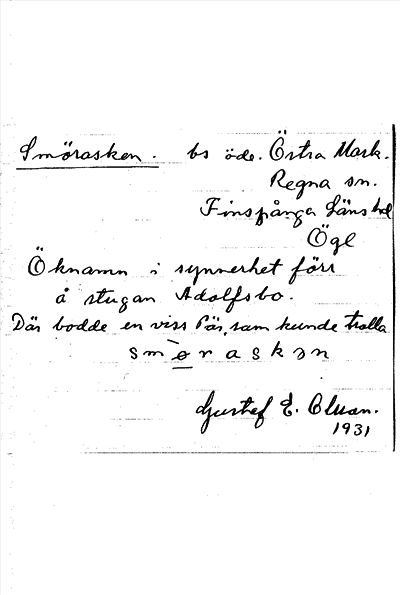 Smörasken. bs öde. Östra Mark.
Regna sn.
Finspånga Länshd
Ögl
Öknamn i synnerhet förr
å stugan Adolfsbo.
Där bodde en viss Pär, som kunde trolla
smø̀raskən
Gustaf E.
1931